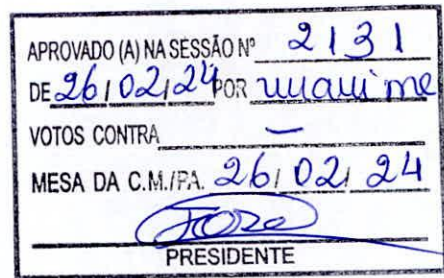 APROVADO (A) NA SESSÃO Nº 2131
DE 26/02/24 POR unanime
VOTOS CONTRA —
MESA DA C.M./PA. 26/02/24
PRESIDENTE